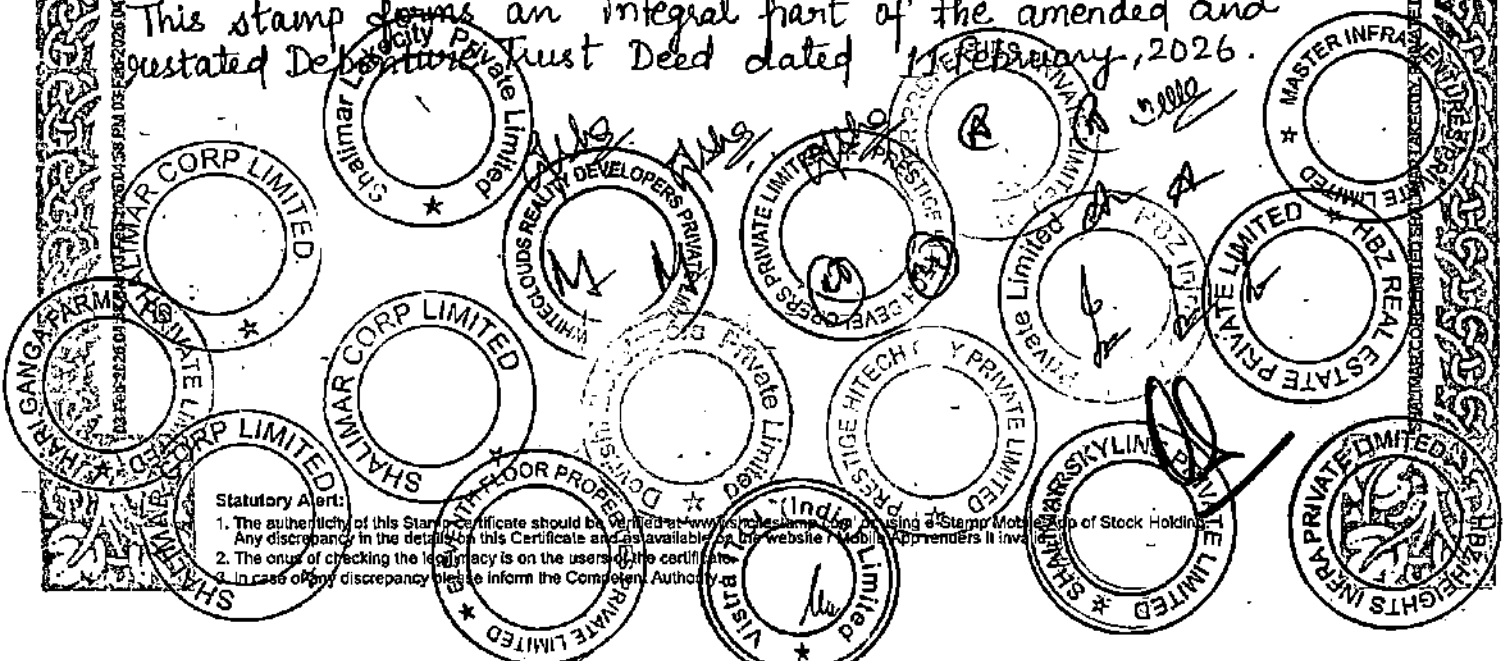 This stamp forms an integral part of the amended and
restated Debenture Trust Deed dated 11 February, 2026.
Shalimar Lakecity Private Limited
MASTER INFRAVENTURES PRIVATE LIMITED
SHALIMAR CORP LIMITED
WHITECLOUDS REALITY DEVELOPERS PRIVATE LIMITED
PRESTIGE HITECH DEVELOPERS PRIVATE LIMITED
PROPERTIES PRIVATE LIMITED
HBZ Private Limited
HBZ REAL ESTATE PRIVATE LIMITED
HARI GANGA FARMERS PRIVATE LIMITED
SHALIMAR CORP LIMITED
Private Limited
PRESTIGE HITECH PRIVATE LIMITED
SHALIMAR CORP LIMITED
FLOOR PRIVATE LIMITED
Vistra (India) Limited
SHALIMAR SKYLINE PRIVATE LIMITED
HBZ HEIGHTS INFRA PRIVATE LIMITED
Statutory Alert:
1. The authenticity of this Stamp certificate should be verified at 'www.shcilestamp.com' or using e-Stamp Mobile App of Stock Holding.
Any discrepancy in the details on this Certificate and as available on the website / Mobile App renders it invalid.
2. The onus of checking the legitimacy is on the users of the certificate.
3. In case of any discrepancy please inform the Competent Authority.